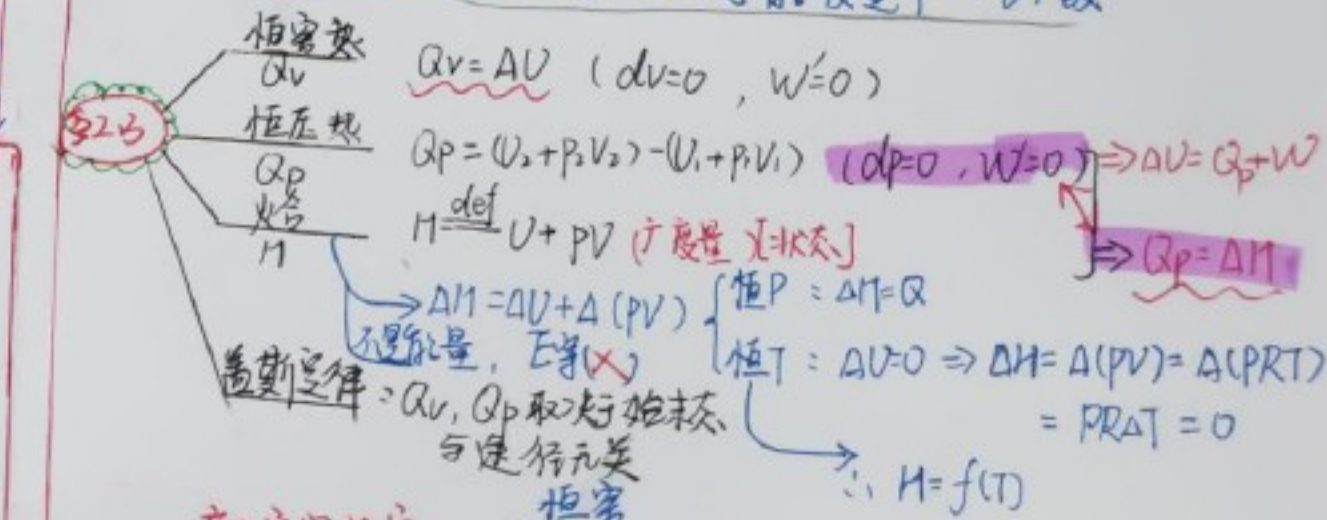 §2.3
恒容热
Qv
Qv=ΔU (dv=0 , W'=0)
恒压热
Qp
Qp=(U₂+P₂V₂)-(U₁+P₁V₁) (dp=0 , W'=0) ⇒ΔU=Qp+W
⇒ Qp=ΔH
焓
H
H def U+PV (广度量)[=状态]
→ΔH=ΔU+Δ(PV) { 恒P : ΔH=Q
不是能量,
恒T : ΔU=0 ⇒ ΔH=Δ(PV)=Δ(PRT)
= PRΔT = 0
∴ H=f(T)
盖斯定律:Qv, Qp取决于始末态、
与途径无关
恒容